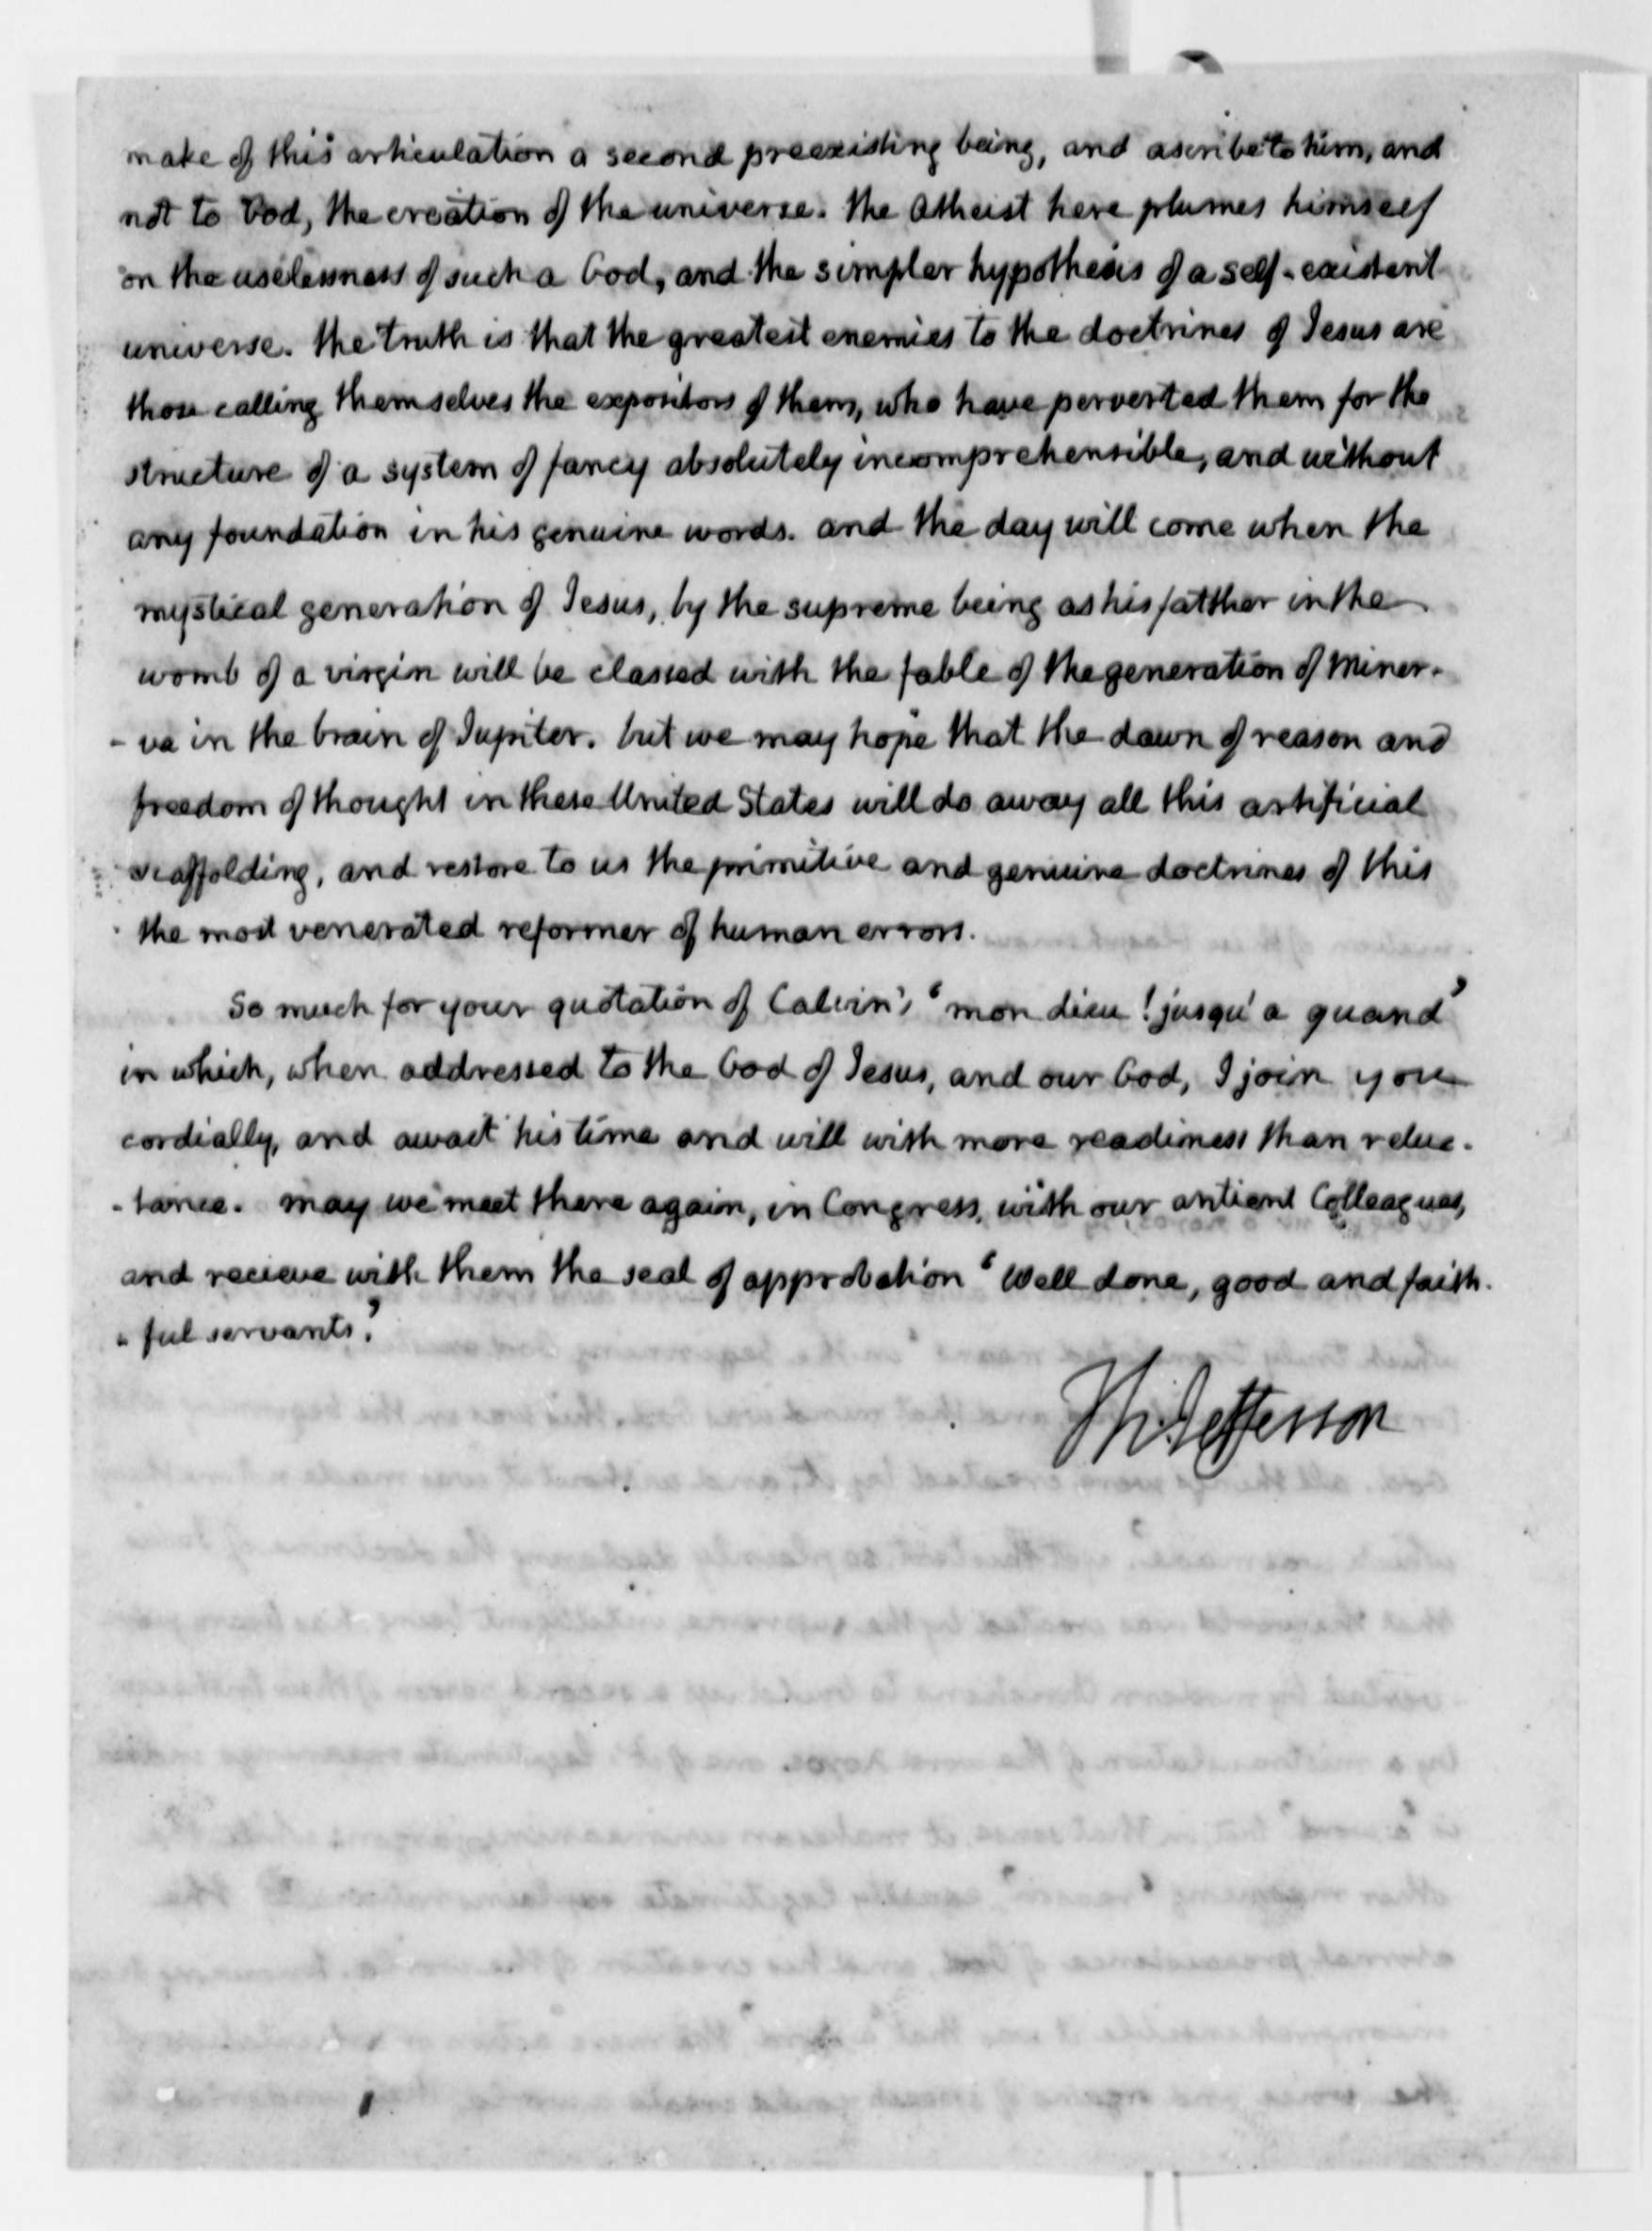 make of this articulation a second preexisting being, and ascribe to him, and
not to God, the creation of the universe. the Atheist here plumes himself
on the uselessness of such a God, and the simpler hypothesis of a self-existent
universe. the truth is that the greatest enemies to the doctrines of Jesus are
those calling themselves the expositors of them, who have perverted them for the
structure of a system of fancy absolutely incomprehensible, and without
any foundation in his genuine words. and the day will come when the
mystical generation of Jesus, by the supreme being as his fatther in the
womb of a virgin will be classed with the fable of the generation of Miner-
-va in the brain of Jupiter. but we may hope that the dawn of reason and
freedom of thought in these United States will do away all this artificial
scaffolding, and restore to us the primitive and genuine doctrines of this
the most venerated reformer of human errors.
So much for your quotation of Calvin's 'mon dieu! jusqu'a quand'
in which, when addressed to the God of Jesus, and our God, I join you
cordially, and await his time and will with more readiness than reluc-
-tance. may we meet there again, in Congress, with our antient Colleagues,
and recieve with them the seal of approbation 'Well done, good and faith-
-ful servants.'
Th: Jefferson